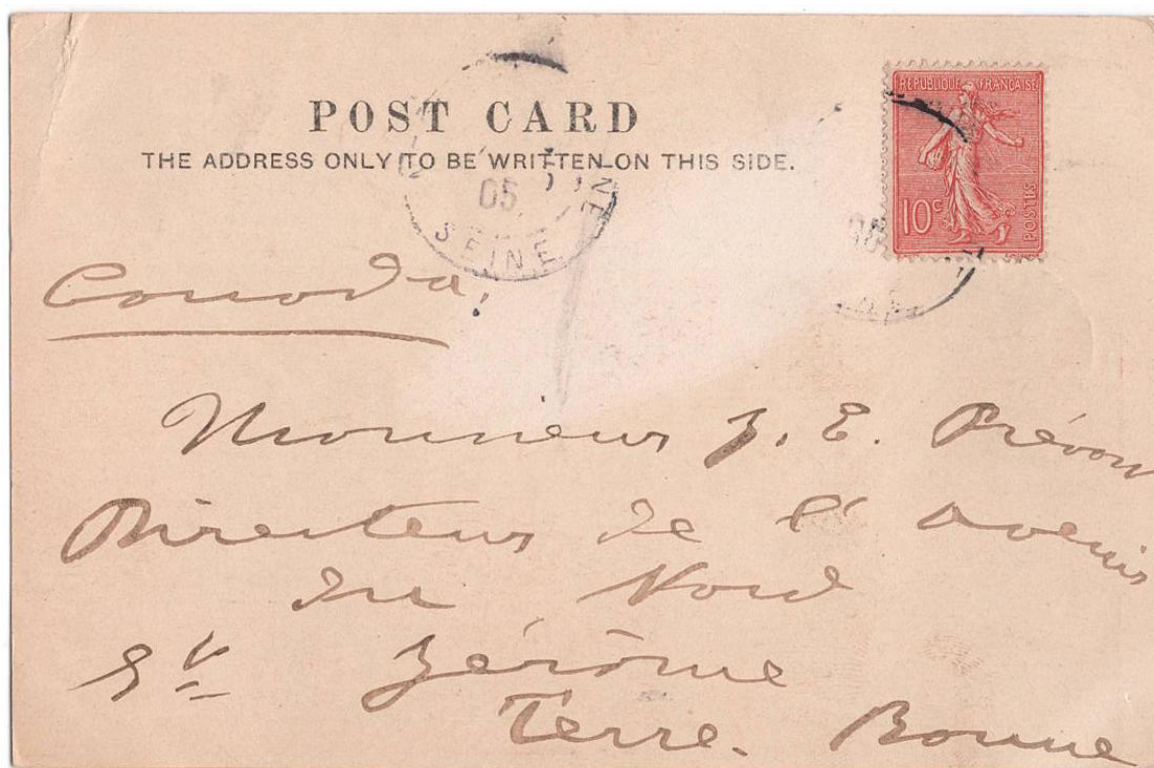 POST CARD
THE ADDRESS ONLY TO BE WRITTEN ON THIS SIDE.
REPUBLIQUE FRANÇAISE
10c
POSTES
05
SEINE
Canada.
Monsieur J. E. Prévost
Directeur de l'avenir
du Nord
St Jérôme
Terre. Bonne